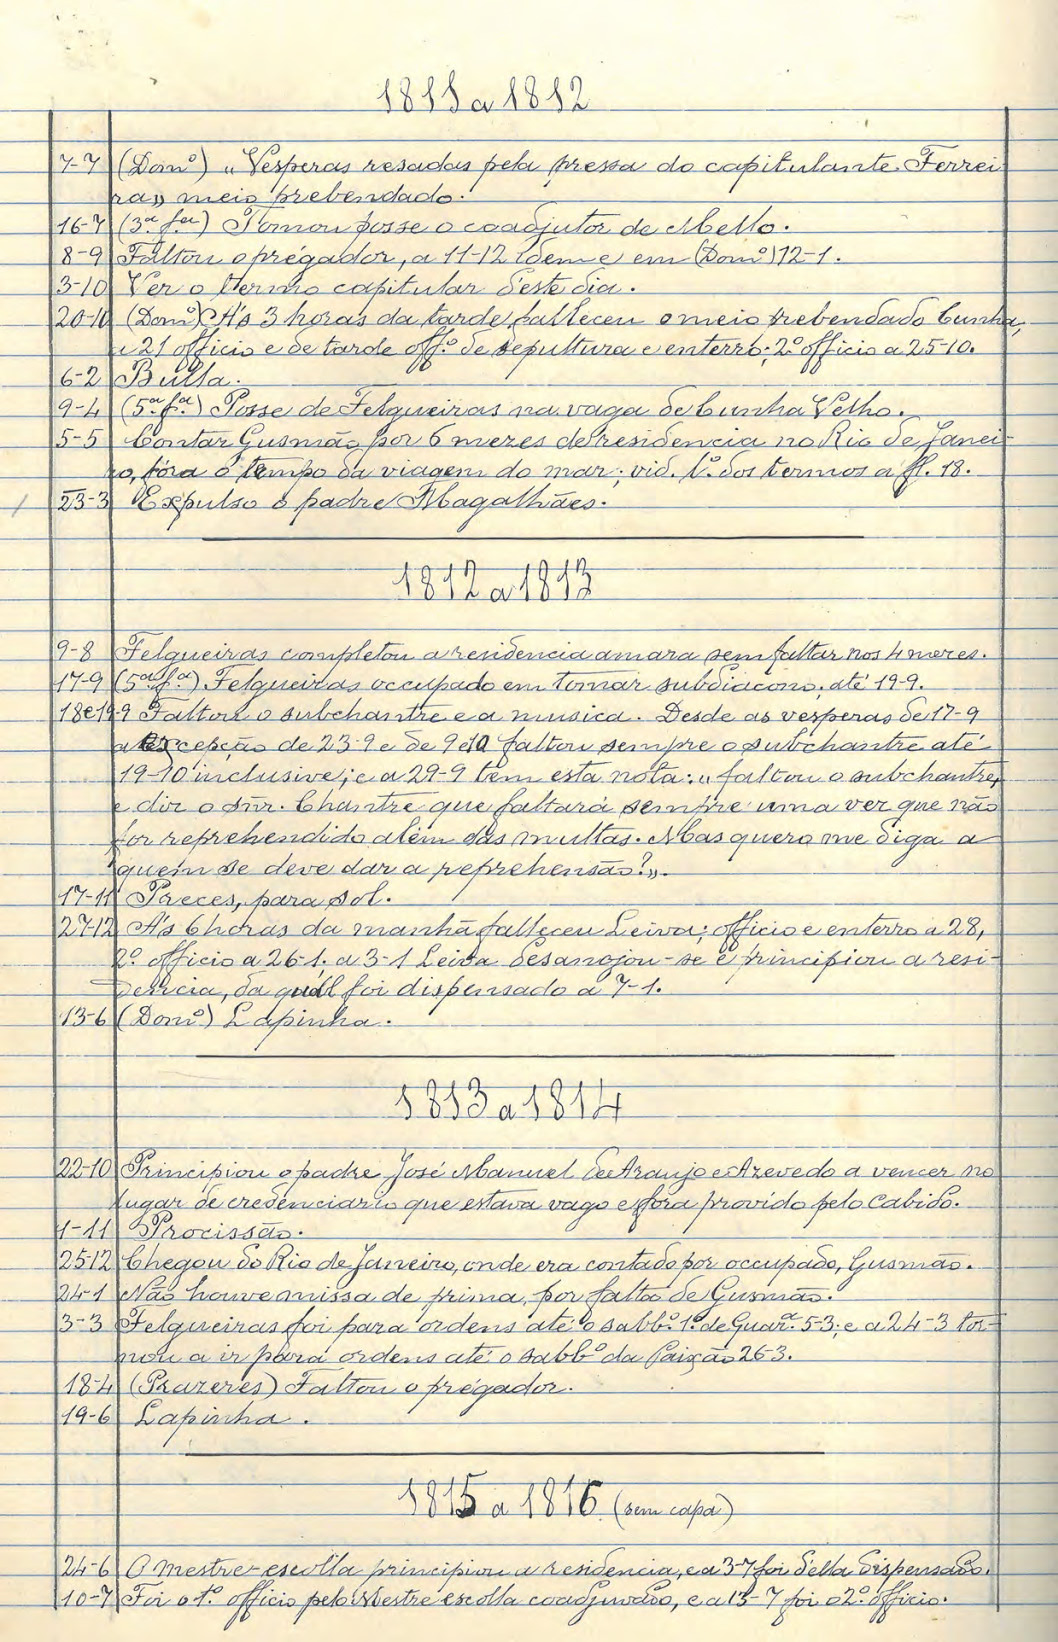 1811 a 1812
7-7 (Domº) „Vesperas resadas pela pressa do capitulante Ferrei-
ra„ meio prebendado.
16-7 (3ª fª) Tomou posse o coadjutor de Mello.
8-9 Faltou o prégador, a 11-12 idem e em (Domº) 12-1.
3-10 Ver o termo capitular d'este dia.
20-10 (Domº) A's 3 horas da tarde falleceu o meio prebendado Cunha,
a 21 officio e de tarde offº de sepultura e enterro; 2º officio a 25-10.
6-2 Bulla.
9-4 (5ª fª) Posse de Felgueiras na vaga de Cunha Velho.
5-5 Contar Gusmão por 6 mezes de residencia no Rio de Janei-
ro, fóra o tempo da viagem do mar; vid. lº dos termos a fl. 18.
23-3 Expulso o padre Magalhães.
1812 a 1813
9-8 Felgueiras completou a residencia amara sem faltar nos 4 mezes.
17-9 (5ª fª) Felgueiras occupado em tomar subdiacono, até 19-9.
18 e 19-9 Faltou o subchantre e a musica. Desde as vesperas de 17-9
a excepção de 23-9 e de 9 e 10 faltou sempre o subchantre até
19-10 inclusive; e a 29-9 tem esta nota: „faltou o subchantre,
e diz o snr. Chantre que faltará sempre uma vez que não
for reprehendido além das multas. Mas quero me diga a
quem se deve dar a reprehensão?„.
17-11 Preces, para sol.
27-12 A's 6 horas da manhã falleceu Leiva; officio e enterro a 28,
2º officio a 26-1. a 3-1 Leiva desanojou-se e principiou a resi-
dencia, da qual foi dispensado a 7-1.
13-6 (Domº) Lapinha.
1813 a 1814
22-10 Principiou o padre José Manuel de Araujo e Azevedo a vencer no
lugar de credenciario que estava vago e fôra provido pelo Cabido.
1-11 Procissão.
25-12 Chegou do Rio de Janeiro, onde era contado por occupado, Gusmão.
24-1 Não houve missa de prima, por falta de Gusmão.
3-3 Felgueiras foi para ordens até o sabbº 1º de Quarª 5-3; e a 24-3 tor-
nou a ir para ordens até o sabbº da Paixão 26-3.
18-4 (Prazeres) Faltou o prégador.
19-6 Lapinha.
1815 a 1816 (sem capa)
24-6 O mestre-escolla principiou a residencia, e a 3-7 foi d'ella dispensado.
10-7 Foi o 1º officio pelo Mestre escolla coadjuvado, e a 13-7 foi o 2º officio.